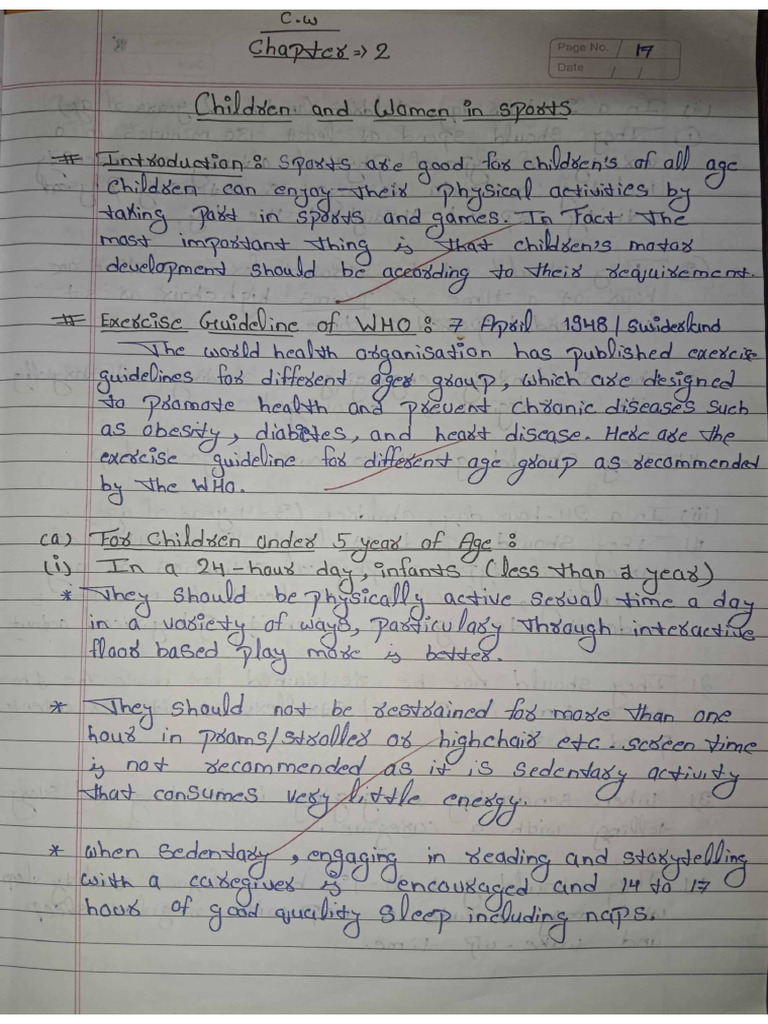 C.W
Chapter => 2
Page No. 17
Date / /
Children and Women in sports
# Introduction : Sports are good for children's of all age
children can enjoy their physical activities by
taking part in sports and games. In Fact the
most important thing is that children's motor
development should be aceording to their reqquirement.
# Exercise Guideline of WHO : 7 April 1948 / Swiderland
The world health organisation has published exercise
guidelines for different ager group, which are designed
to promote health and prevent chronic diseases such
as obesity, diabetes, and heart disease. Here are the
exercise guideline for different age group as recommended
by the WHO.
(a) For Children under 5 year of Age :
(i) In a 24-hour day, infants (less than 1 year)
* They should be physically active serual time a day
in a variety of ways, particulary through interactive
floor based play more is better.
* They should not be restrained for more than one
hour in prams/stroller or highchair etc. screen time
is not recommended as it is sedentary activity
that consumes very little energy.
* when sedentary, engaging in reading and storytelling
with a caregiver is encouraged and 14 to 17
hour of good quality sleep including naps.